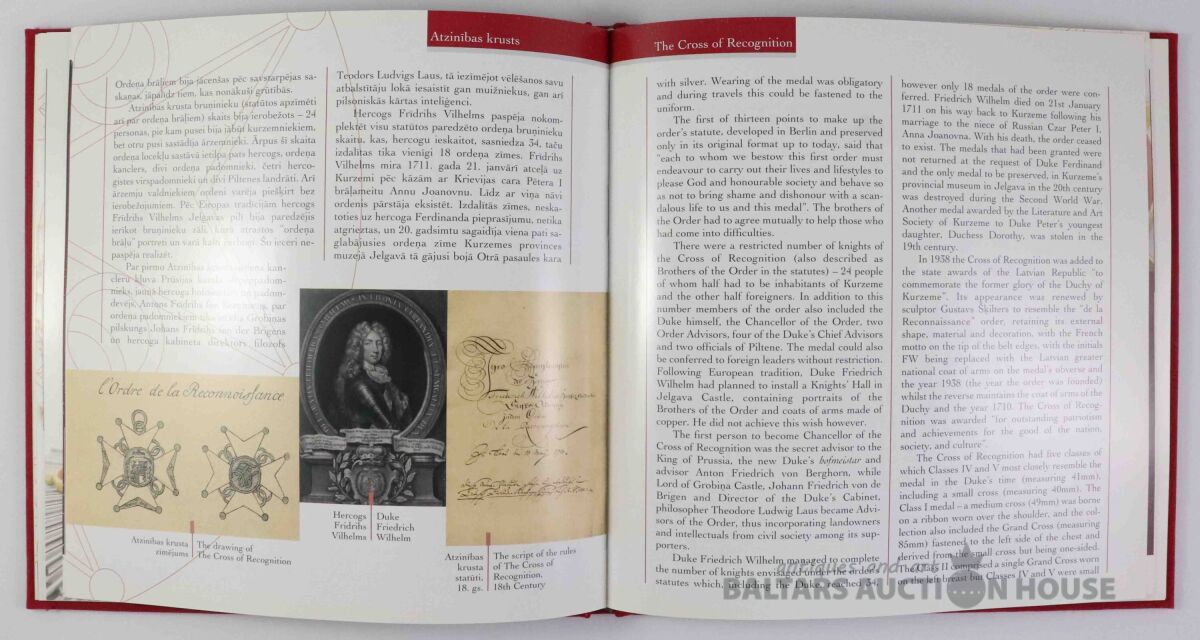 Atzinības krusts
Ordeņa brāļiem bija jācenšas pēc savstarpējas sa-
skaņas, jāpalīdz tiem, kas nonākuši grūtībās.
Atzinības krusta bruņinieku (statūtos apzīmēti
arī par ordeņa brāļiem) skaits bija ierobežots – 24
personas, pie kam pusei bija jābūt kurzemniekiem,
bet otru pusi sastādīja ārzemnieki. Ārpus šī skaita
ordeņa locekļu sastāvā ietilpa pats hercogs, ordeņa
kanclers, divi ordeņa padomnieki, četri herco-
gistes virspadomnieki un divi Piltenes landrāti. Arī
ārzemju valdniekiem ordeni varēja piešķirt bez
ierobežojumiem. Pēc Eiropas tradīcijām hercogs
Frīdrihs Vilhelms Jelgavas pilī bija paredzējis
ierīkot bruņinieku zāli, kurā atrastos "ordeņa
brāļu" portreti un varā kalti ģerboņi. Šo ieceri ne-
paspēja realizēt.
Par pirmo Atzinības krusta ordeņa kan-
cleru kļuva Prūsijas karaļa
nieks, jaunā hercoga
devējs Antons Frīdrihs fon par
ordeņa padomniekiem Grobiņas
pilskungs Johans Frīdrihs fon der Brigens
un hercoga kabineta direktors, filozofs
Teodors Ludvigs Laus, tā iezīmējot vēlēšanos savu
atbalstītāju lokā iesaistīt gan muižniekus, gan arī
pilsoniskās kārtas inteliģenci.
Hercogs Frīdrihs Vilhelms paspēja nokom-
plektēt visu statūtos paredzēto ordeņa bruņinieku
skaitu, kas, hercogu ieskaitot, sasniedza 34, taču
izdalītas tika vienīgi 18 ordeņa zīmes. Frīdrihs
Vilhelms mira 1711. gada 21. janvārī atceļā uz
Kurzemi pēc kāzām ar Krievijas cara Pētera I
brāļameitu Annu Joanovnu. Līdz ar viņa nāvi
ordenis pārstāja eksistēt. Izdalītās zīmes, neska-
toties uz hercoga Ferdinanda pieprasījumu, netika
atgrieztas, un 20. gadsimtu sagaidīja viena pati sa-
glabājusies ordeņa zīme Kurzemes provinces
muzejā Jelgavā tā gājusi bojā Otrā pasaules kara
l'Ordre de la Reconnoissance
Atzinības krusta
zīmējums
The drawing of
The Cross of Recognition
Hercogs
Frīdrihs
Vilhelms
Duke
Friedrich
Wilhelm
Atzinības
krusta
statūti.
18. gs.
The script of the rules
of The Cross of
Recognition.
18th Century
The Cross of Recognition
with silver. Wearing of the medal was obligatory
and during travels this could be fastened to the
uniform.
The first of thirteen points to make up the
order's statute, developed in Berlin and preserved
only in its original format up to today, said that
"each to whom we bestow this first order must
endeavour to carry out their lives and lifestyles to
please God and honourable society and behave so
as not to bring shame and dishonour with a scan-
dalous life to us and this medal". The brothers of
the Order had to agree mutually to help those who
had come into difficulties.
There were a restricted number of knights of
the Cross of Recognition (also described as
Brothers of the Order in the statutes) – 24 people
of whom half had to be inhabitants of Kurzeme
and the other half foreigners. In addition to this
number members of the order also included the
Duke himself, the Chancellor of the Order, two
Order Advisors, four of the Duke's Chief Advisors
and two officials of Piltene. The medal could also
be conferred to foreign leaders without restriction.
Following European tradition, Duke Friedrich
Wilhelm had planned to install a Knights' Hall in
Jelgava Castle, containing portraits of the
Brothers of the Order and coats of arms made of
copper. He did not achieve this wish however.
The first person to become Chancellor of the
Cross of Recognition was the secret advisor to the
King of Prussia, the new Duke's hofmeistar and
advisor Anton Friedrich von Berghorn, while
Lord of Grobiņa Castle, Johann Friedrich von de
Brigen and Director of the Duke's Cabinet,
philosopher Theodore Ludwig Laus became Advi-
sors of the Order, thus incorporating landowners
and intellectuals from civil society among its sup-
porters.
Duke Friedrich Wilhelm managed to complete
the number of knights envisaged under the order's
statutes which, including the Duke, reached 34,
however only 18 medals of the order were con-
ferred. Friedrich Wilhelm died on 21st January
1711 on his way back to Kurzeme following his
marriage to the niece of Russian Czar Peter I,
Anna Joanovna. With his death, the order ceased
to exist. The medals that had been granted were
not returned at the request of Duke Ferdinand
and the only medal to be preserved, in Kurzeme's
provincial museum in Jelgava in the 20th century
was destroyed during the Second World War.
Another medal awarded by the Literature and Art
Society of Kurzeme to Duke Peter's youngest
daughter, Duchess Dorothy, was stolen in the
19th century.
In 1938 the Cross of Recognition was added to
the state awards of the Latvian Republic "to
commemorate the former glory of the Duchy of
Kurzeme". Its appearance was renewed by
sculptor Gustavs Šķilters to resemble the "de la
Reconnaissance" order, retaining its external
shape, material and decoration, with the French
motto on the tip of the belt edges, with the initials
FW being replaced with the Latvian greater
national coat of arms on the medal's obverse and
the year 1938 (the year the order was founded)
whilst the reverse maintains the coat of arms of the
Duchy and the year 1710. The Cross of Recog-
nition was awarded "for outstanding patriotism
and achievements for the good of the nation,
society, and culture".
The Cross of Recognition had five classes of
which Classes IV and V most closely resemble the
medal in the Duke's time (measuring 41mm),
including a small cross (measuring 40mm). The
Class I medal – a medium cross (49mm) was borne
on a ribbon worn over the shoulder, and the col-
lection also included the Grand Cross (measuring
85mm) fastened to the left side of the chest and
derived from the small cross but being one-sided.
The Class II comprised a single Grand Cross worn
on the left breast but Classes IV and V were small
antiques and arts
BALTARS AUCTION HOUSE